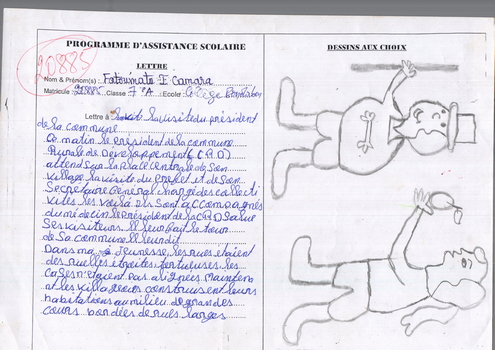 PROGRAMME D'ASSISTANCE SCOLAIRE
DESSINS AUX CHOIX
20885
LETTRE
Nom & Prénom(s) : Fatoumata I Camara
Matricule : 20885 Classe : 7e A Ecole : Collège
Lettre à la visite du président
de la commune
Ce matin le président de la commune
Rurale de Développement (C.R.D)
attend sur la place centrale de son
village la visite du prefet et de son
Secretaire Général chargé des collecti
vités les voilà ils sont accompagnés
du médecin le Président de la CRD salue
Ses visiteurs il leur fait le tour
de Sa commune il leur dit
Dans ma Jeunesse les rues etaient
des ruelles étroites tortueuses les
cases n'étaient pas alignées mainten
nt les villageois construisent leurs
habitations au milieu de grandes
cours bordées de rues larges